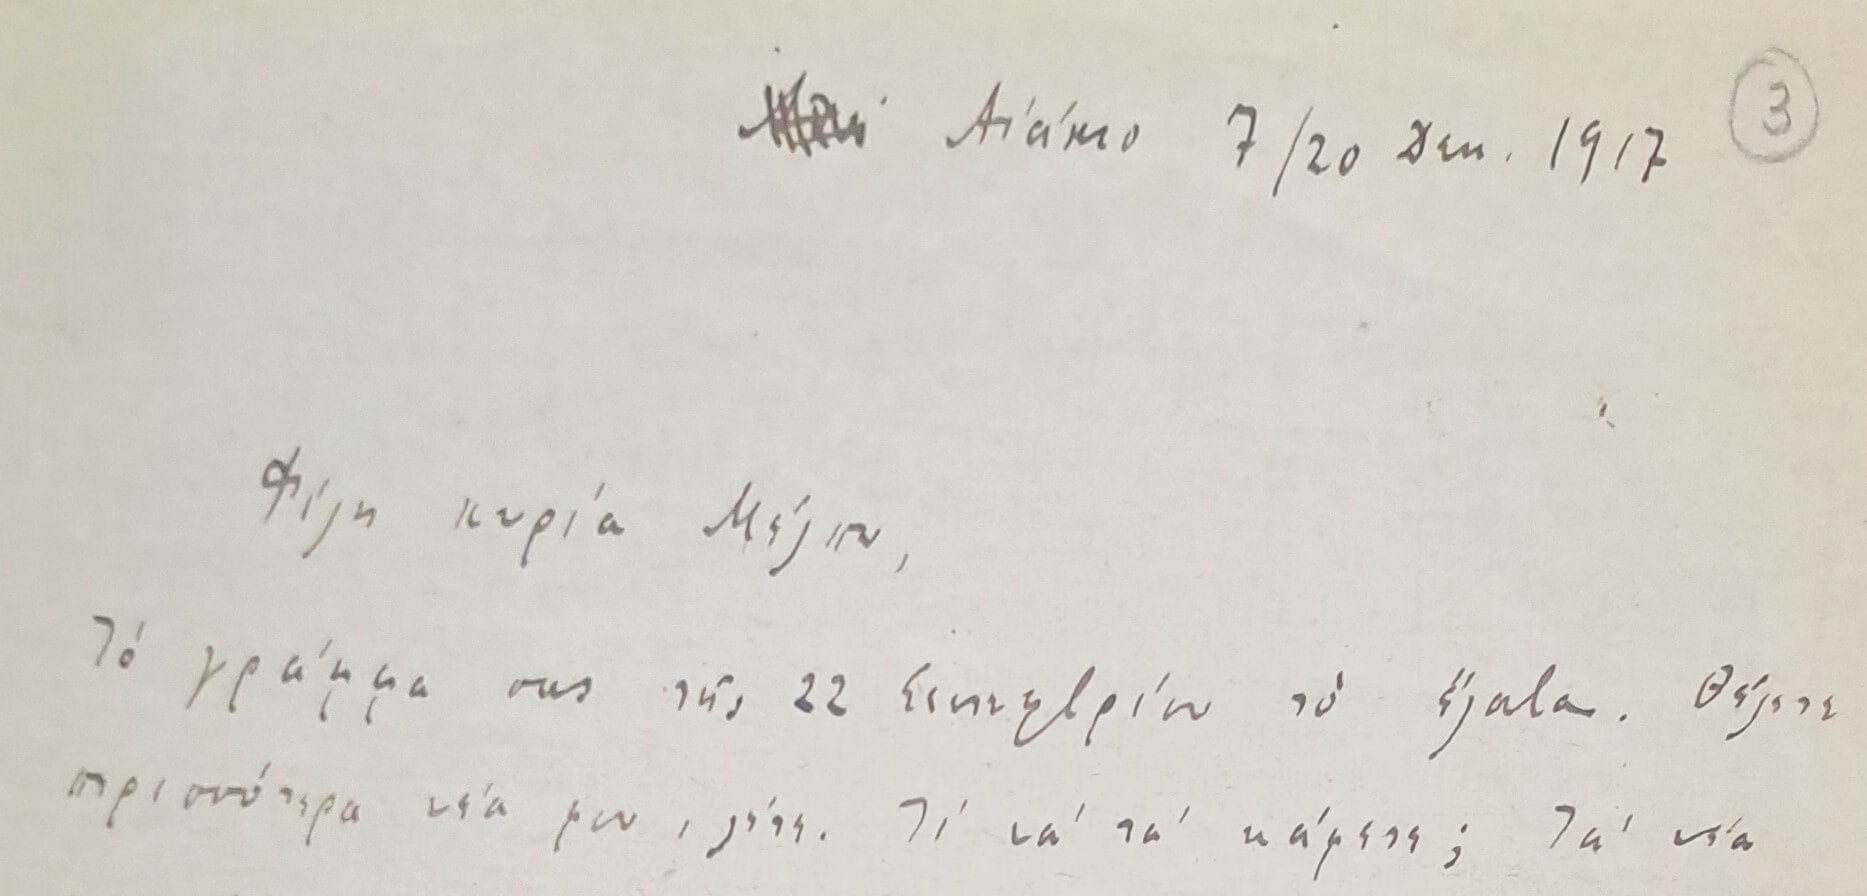 Αἰάκιο 7/20 Δεκ. 1917 3
Φίλη κυρία Μέλπω,
Τό γράμμα σας τῆς 22 Σεπτεμβρίου τό ἔλαβα. Θέλετε
περισσότερα νέα μου, λέτε. Τί νά τά κάμετε; Τά νέα